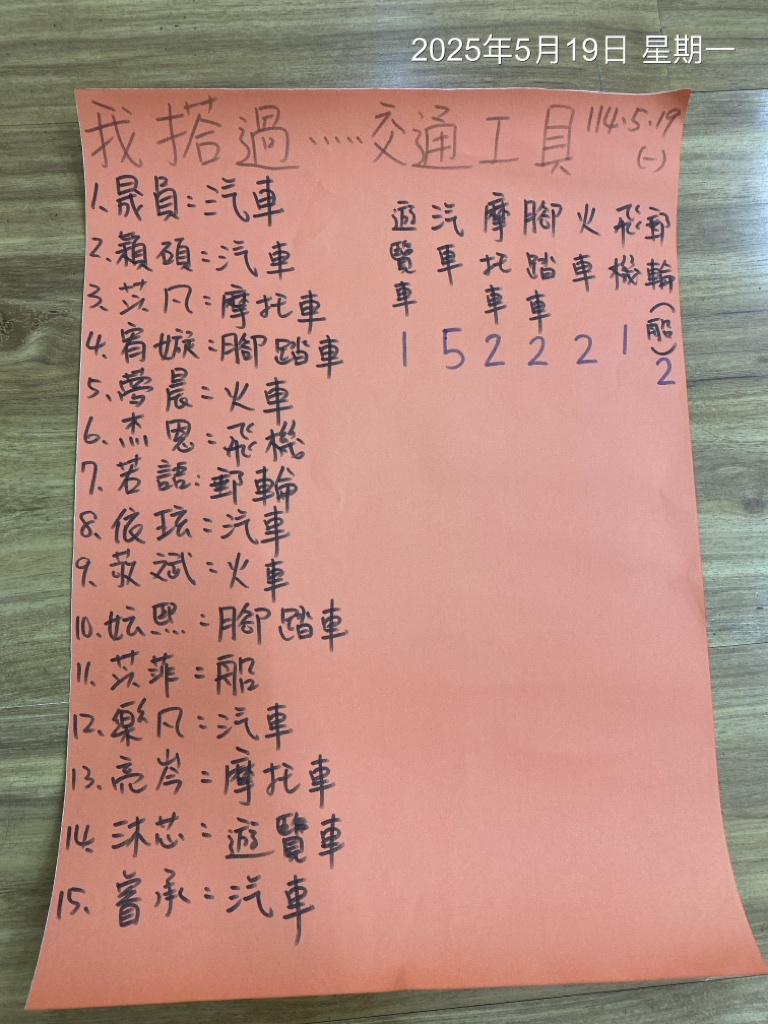 2025年5月19日 星期一
我搭過.....交通工具
114.5.19
(一)
1.晟員:汽車
2.穎碩:汽車
3.苡凡:摩托車
4.宥嫙:腳踏車
5.夢晨:火車
6.杰恩:飛機
7.若語:郵輪
8.依玹:汽車
9.苡斌:火車
10.妘熙:腳踏車
11.苡菲:船
12.樂凡:汽車
13.亮岑:摩托車
14.沐芯:遊覽車
15.睿承:汽車
遊覽車 1
汽車 5
摩托車 2
腳踏車 2
火車 2
飛機 1
郵輪(船) 2